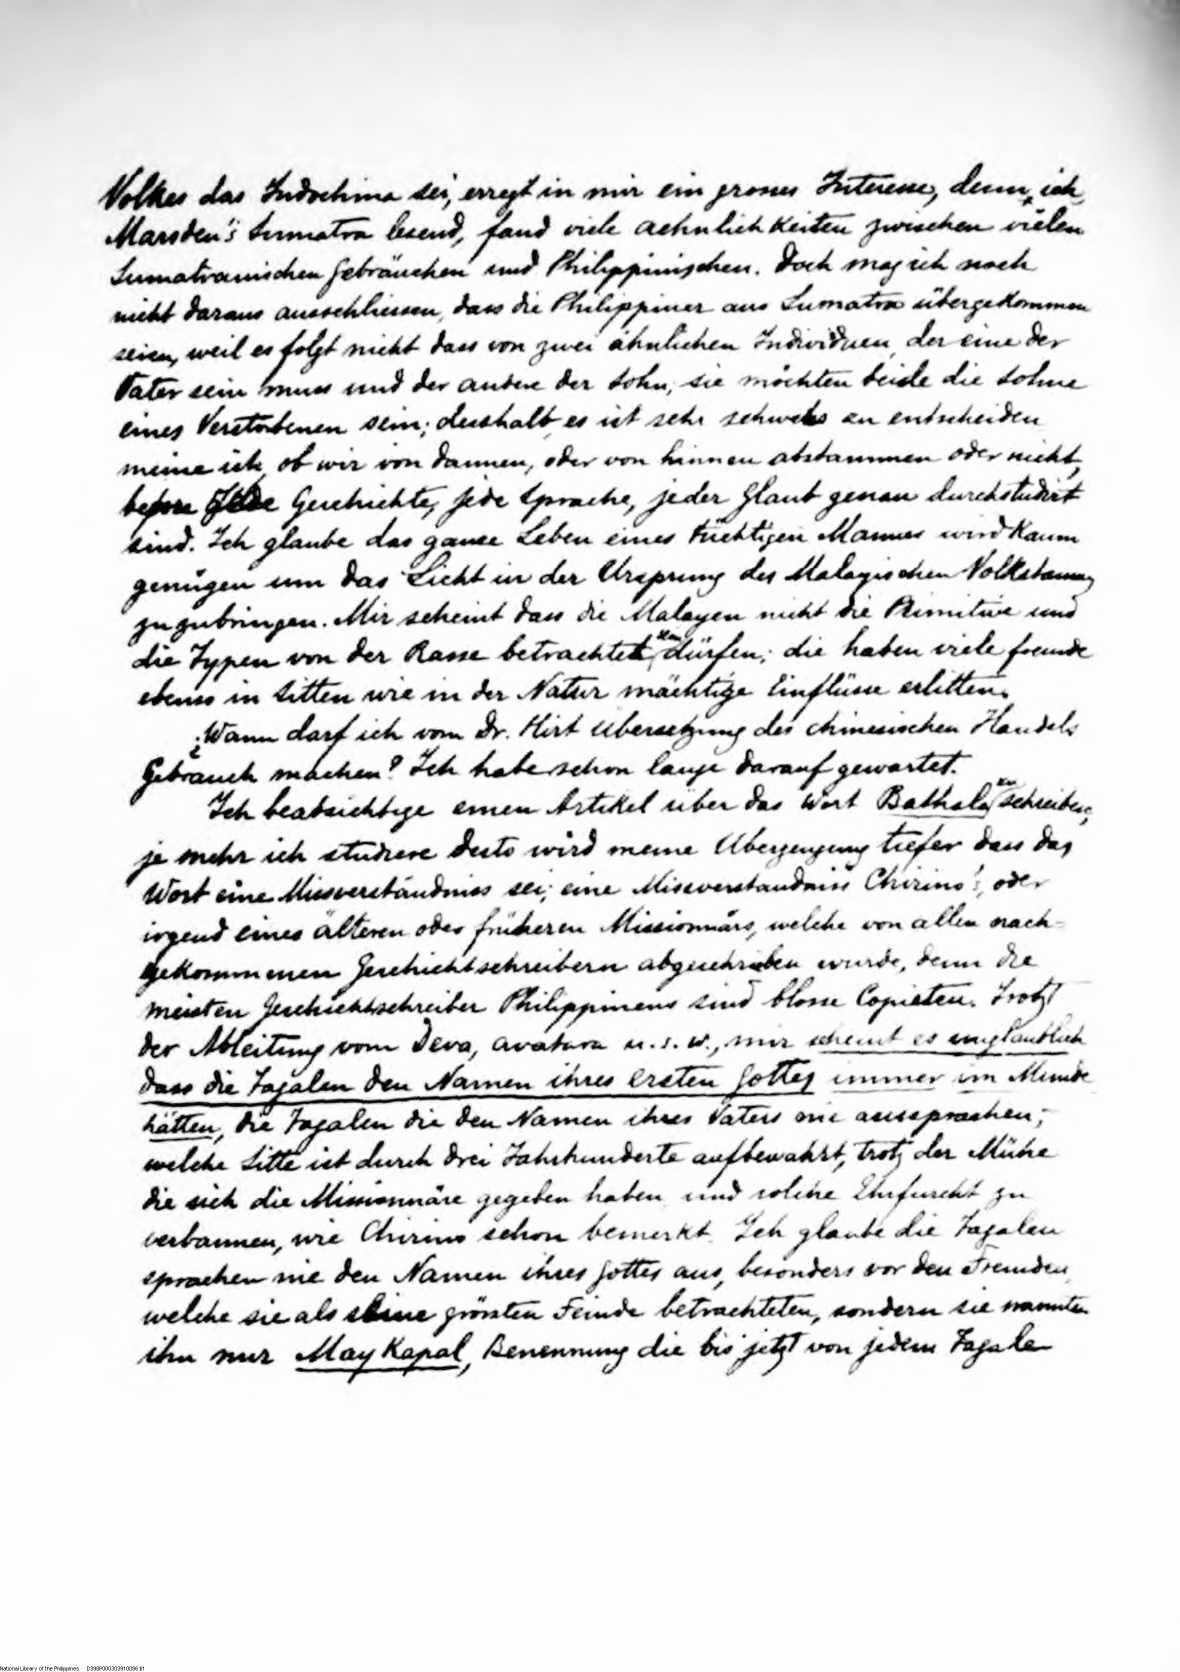 Volkes das Indochina sei, erregt in mir ein grosses Interesse, denn ich,
Marsden's Sumatra lesend, fand viele aehnlichkeiten zwischen vielen
Sumatranischen Gebräuchen und Philippinischen. Doch mag ich noch
nicht daraus ausschliessen, dass die Philippiner aus Sumatra übergekommen
seien, weil es folgt nicht dass von zwei ähnlichen Individuen, der eine der
Vater sein muss und der andere der Sohn; sie möchten beide die Sohne
eines Verstorbenen sein; desshalb es ist sehr schwer zu entscheiden
meine ich, ob wir von dannen, oder von hinnen abstammen oder nicht,
bevor jede Geschichte, jede Sprache, jeder Glaub genau durchstudirt
sind. Ich glaube das ganze Leben eines tüchtigen Mannes wird kaum
genügen um das Licht in der Ursprung des Malayischen Volkstamms
zu zubringen. Mir scheint dass die Malayen nicht die Primitive und
die Typen von der Rasse betrachtet dürfen; die haben viele fremde
ebenso in Sitten wie in der Natur mächtige Einflüsse erlitten.
¿Wann darf ich vom Dr. Hirt Ubersetzung des chinesischen Handels
Gebrauch machen? Ich habe schon lange darauf gewartet.
Ich beabsichtige einen Artikel über das Wort Bathala zu schreiben;
je mehr ich studiere desto wird meine Uberzeugung tiefer dass das
Wort eine Missverständniss sei; eine Missverstandniss Chirino's, oder
irgend eines älteren oder früheren Missionnärs, welche von allen nach-
gekommenen Geschichtschreibern abgeschrieben wurde, denn die
meisten Geschichtschreiber Philippinens sind blosse Copisten. Trotzt
der Ableitung vom Deva, avatara u. s. w., mir scheint es unglaublich
dass die Tagalen den Namen ihres ersten Gottes immer im Munde
hätten, die Tagalen die den Namen ihres Vaters nie aussprachen;
welche Sitte ist durch drei Jahrhunderte aufbewahrt, trotz der Mühe
die sich die Missionnäre gegeben haben und solche Ehrfurcht zu
verbannen, wie Chirino schon bemerkt. Ich glaube die Tagalen
sprachen nie den Namen ihres Gottes aus, besonders vor den Fremden,
welche sie als seine grössten Feinde betrachteten, sondern sie nannten
ihn nur May Kapal, Benennung die bis jetzt von jedem Tagale
National Library of the Philippines